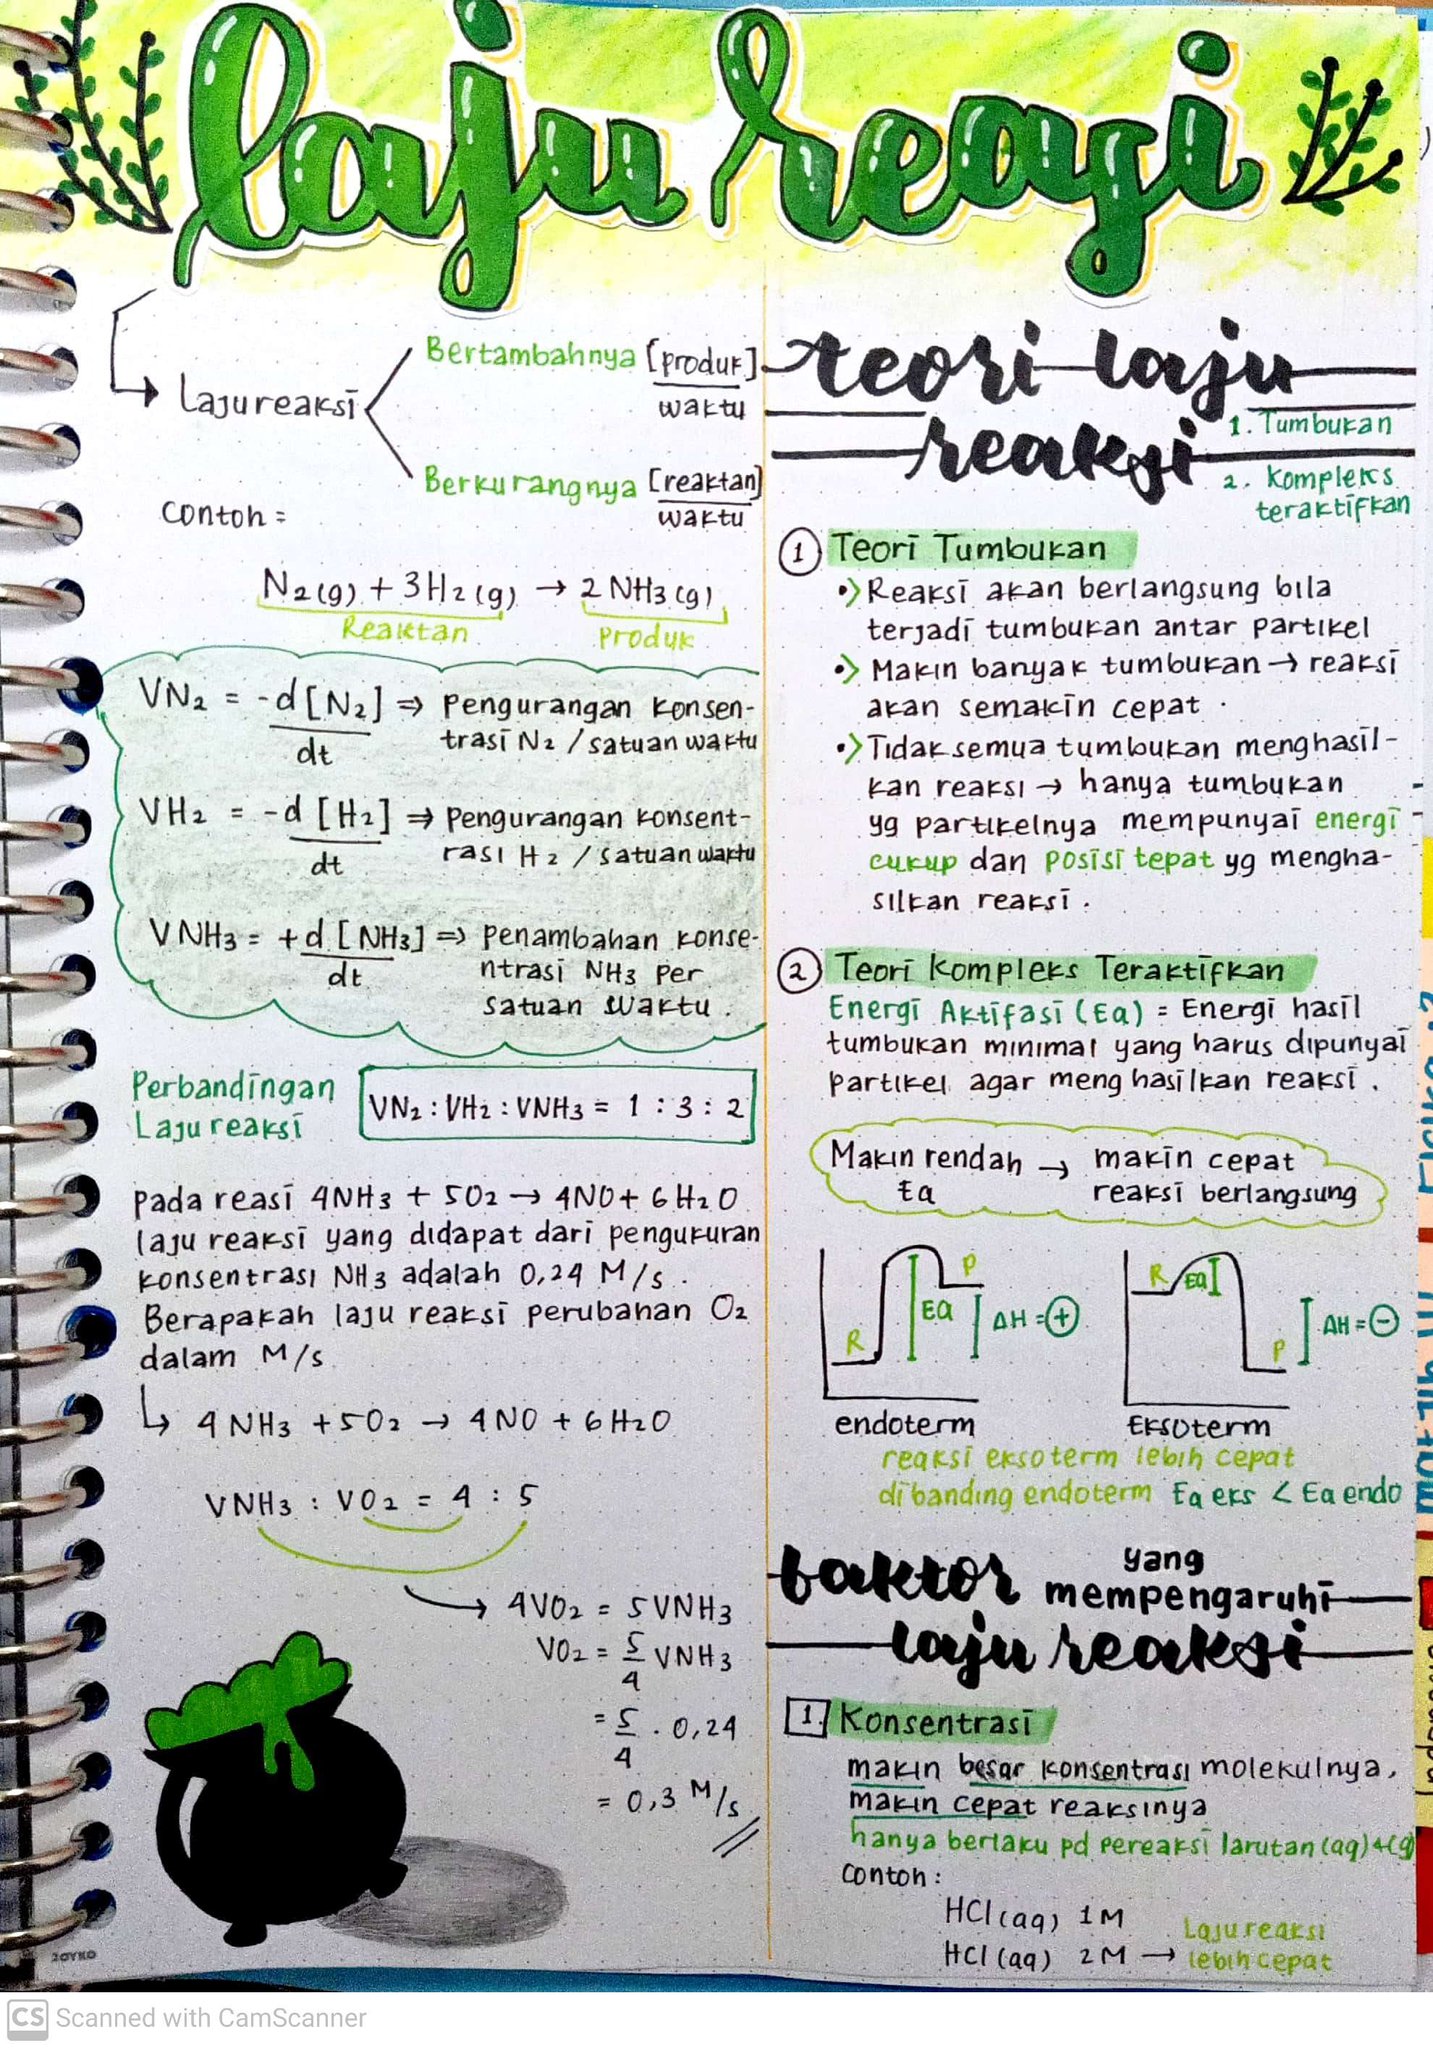 laju reaksi
Laju reaksi
Bertambahnya [produk]
waktu
Berkurangnya [reaktan]
waktu
Contoh =
N2(g) + 3H2(g) → 2 NH3(g)
Reaktan
Produk
VN2 = -d [N2] ⇒ pengurangan konsen-
dt
trasi N2 / satuan waktu
VH2 = -d [H2] ⇒ pengurangan konsent-
dt
rasi H2 / satuan waktu
VNH3 = +d [NH3] ⇒ penambahan konse-
dt
ntrasi NH3 per
satuan waktu.
Perbandingan
Laju reaksi
VN2 : VH2 : VNH3 = 1 : 3 : 2
pada reasi 4NH3 + 5O2 → 4NO + 6H2O
laju reaksi yang didapat dari pengukuran
konsentrasi NH3 adalah 0,24 M/s.
Berapakah laju reaksi perubahan O2
dalam M/s
↳ 4 NH3 + 5O2 → 4NO + 6H2O
VNH3 : VO2 = 4 : 5
→ 4VO2 = 5VNH3
VO2 = 5/4 VNH3
= 5/4 . 0,24
= 0,3 M/s
JOYKO
teori laju
reaksi
1. Tumbukan
2. Kompleks
teraktifkan
1 Teori Tumbukan
•> Reaksi akan berlangsung bila
terjadi tumbukan antar partikel
•> Makin banyak tumbukan → reaksi
akan semakin cepat.
•> Tidak semua tumbukan menghasil-
kan reaksi → hanya tumbukan
yg partikelnya mempunyai energi
cukup dan posisi tepat yg mengha-
silkan reaksi.
2 Teori Kompleks Teraktifkan
Energi Aktifasi (Ea) = Energi hasil
tumbukan minimal yang harus dipunyai
partikel agar menghasilkan reaksi.
Makin rendah → makin cepat
Ea
reaksi berlangsung
R
Ea
P
ΔH = +
endoterm
R
Ea
P
ΔH = -
Eksoterm
reaksi eksoterm lebih cepat
dibanding endoterm Ea eks < Ea endo
faktor yang
mempengaruhi
laju reaksi
1. Konsentrasi
makin besar konsentrasi molekulnya,
makin cepat reaksinya
hanya berlaku pd pereaksi larutan (aq) + (g)
Contoh :
HCl (aq) 1 M
HCl (aq) 2 M → Laju reaksi
lebih cepat
CS Scanned with CamScanner